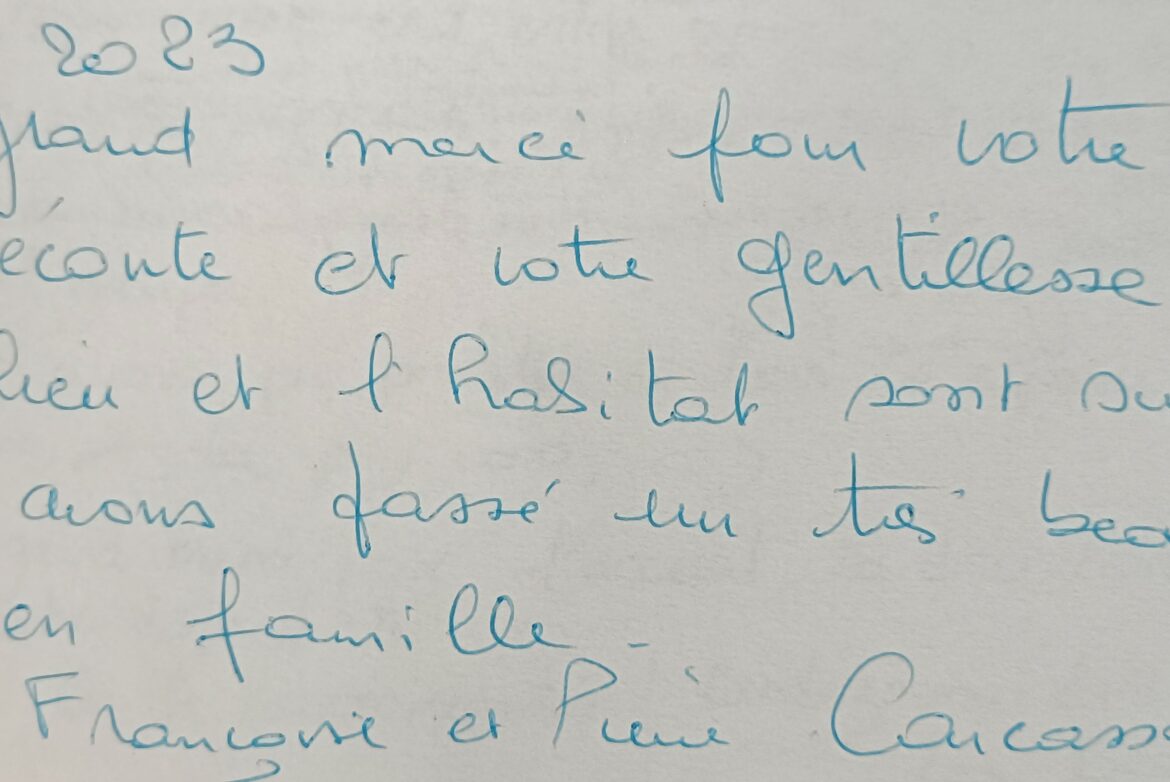 2023
grand merci pour votre
écoute et votre gentillesse
lieu et l'habitat sont su
avons passé un très bea
en famille.
Françoise et Pierre Carcass